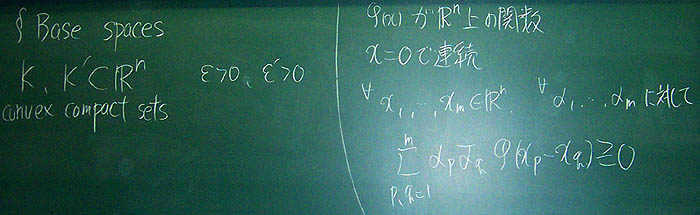 § Base spaces
K, K' ⊂ ℝⁿ  ε>0, ε'>0
convex compact sets
φ(x) が ℝⁿ上の関数
x=0で連続
∀x₁, ..., xₘ ∈ ℝⁿ, ∀α₁, ..., αₘに対して
∑_{p,q=1}^{m} α_p ᾱ_q φ(x_p − x_q) ≧ 0